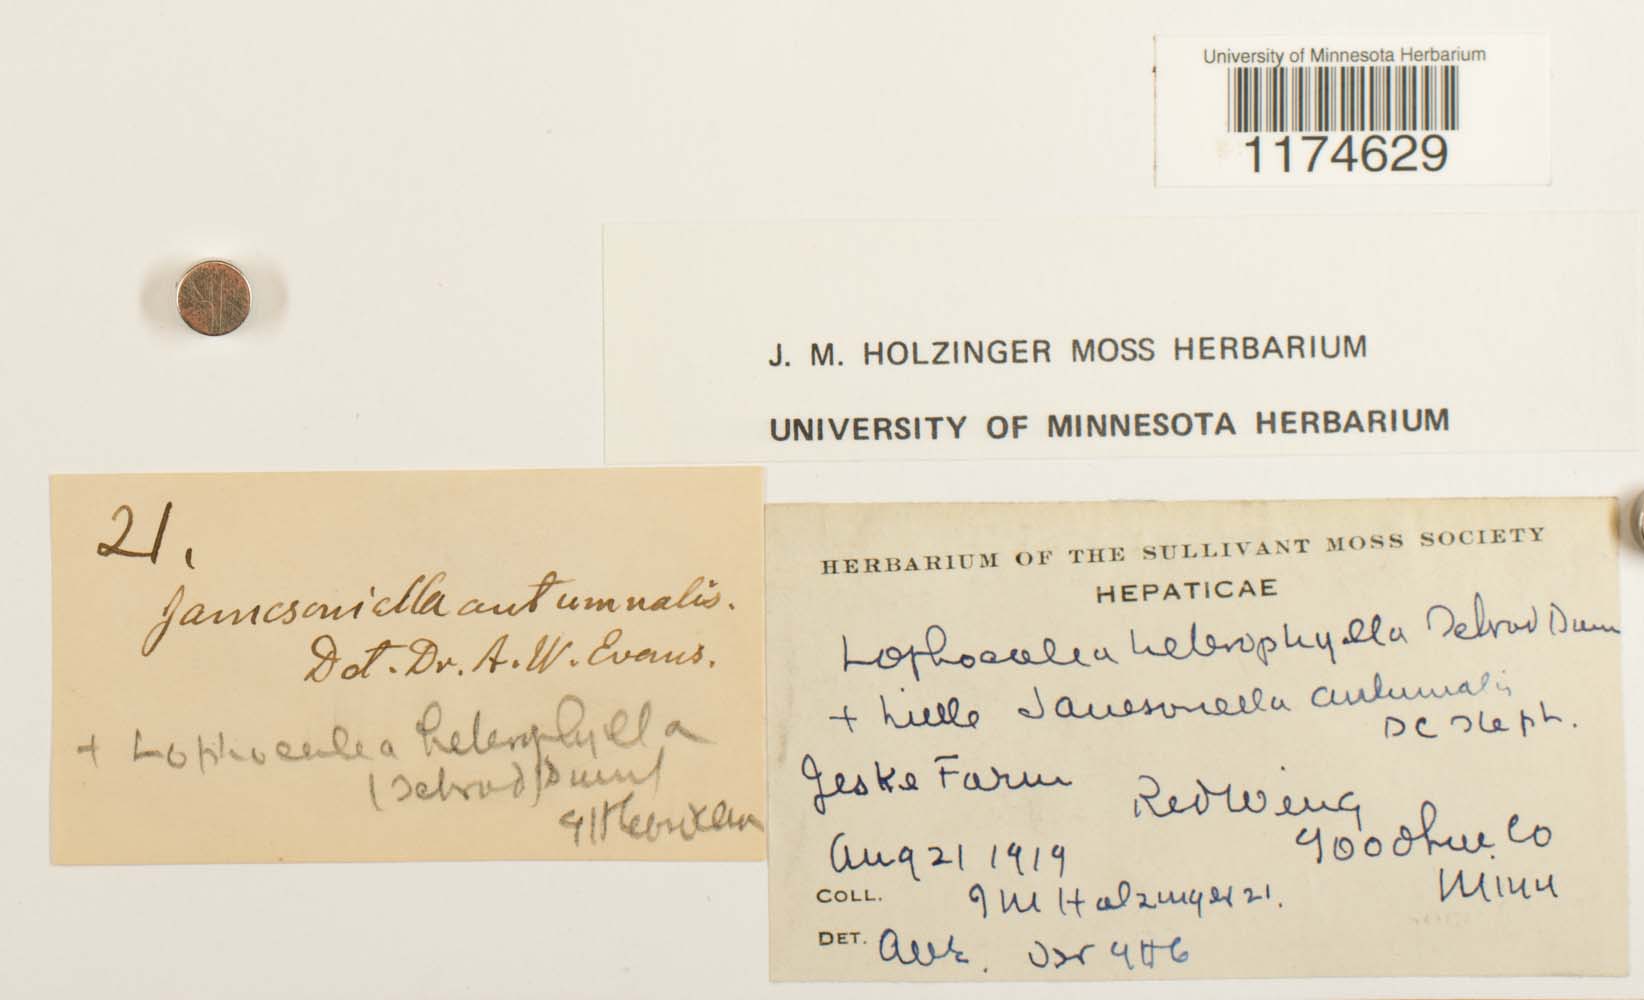 University of Minnesota Herbarium
1174629
J. M. HOLZINGER MOSS HERBARIUM
UNIVERSITY OF MINNESOTA HERBARIUM
21.
Jamesoniella autumnalis.
Det. Dr. A. W. Evans.
+ Lophocolea heterophylla
(Schrad) Dum
HERBARIUM OF THE SULLIVANT MOSS SOCIETY
HEPATICAE
Lophocolea heterophylla Schrad Dum
+ little Jamesonella autumnalis
DC Steph.
Jeske Farm
Red Wing
Goodhue Co
Aug 21 1919
Minn
COLL. J M Holzinger 21.
DET.